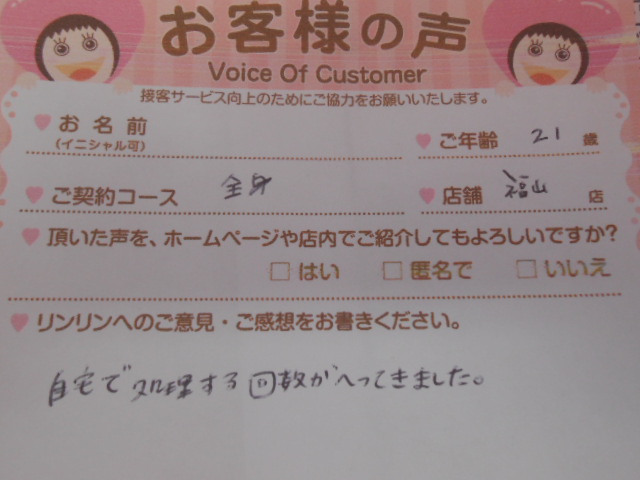 お客様の声
Voice Of Customer
接客サービス向上のためにご協力をお願いいたします。
お名前
(イニシャル可)
ご年齢 21 歳
ご契約コース 全身
店舗 福山 店
頂いた声を、ホームページや店内でご紹介してもよろしいですか?
□はい □匿名で □いいえ
リンリンへのご意見・ご感想をお書きください。
自宅で処理する回数がへってきました。